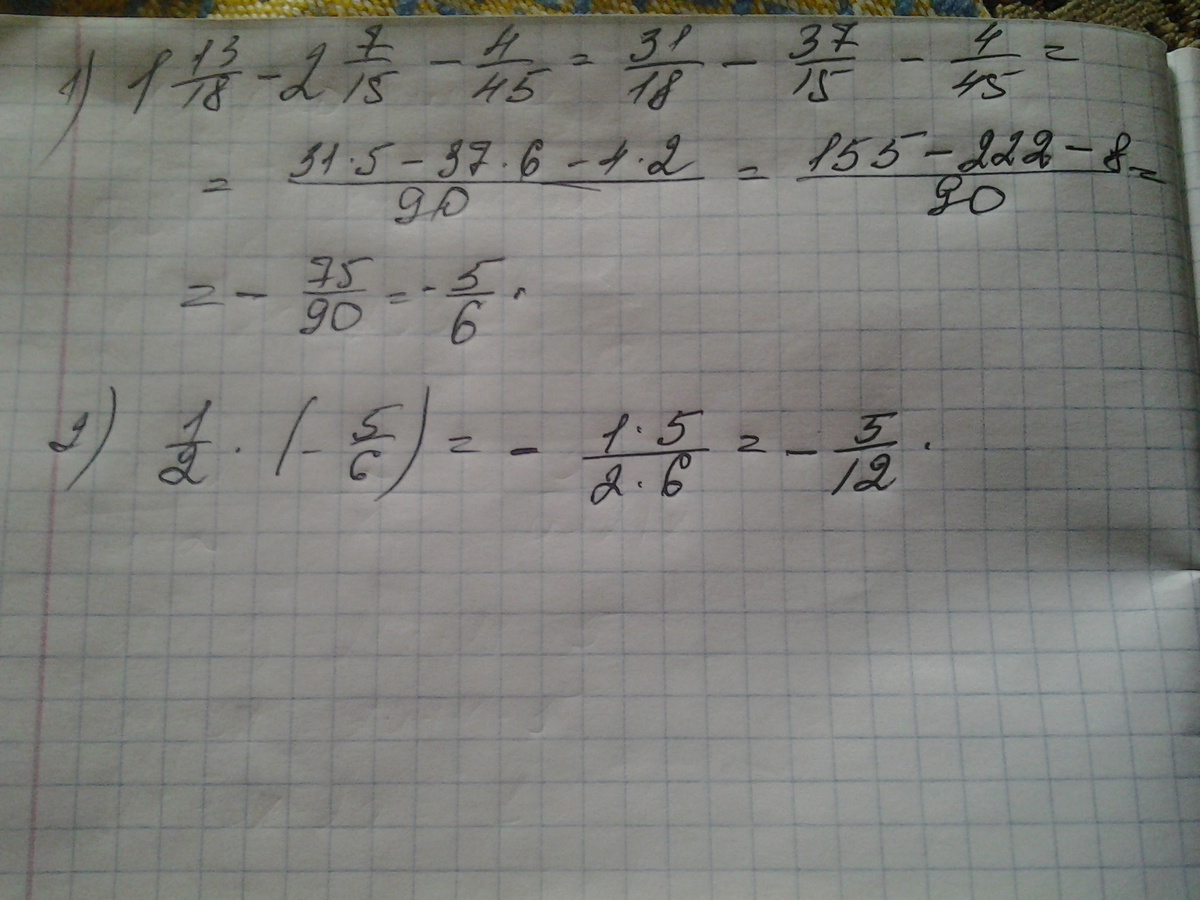 1) 1 13/18 - 2 7/15 - 4/45 = 31/18 - 37/15 - 4/45 =
= (31·5 - 37·6 - 4·2)/90 = (155 - 222 - 8)/90 =
= - 75/90 = - 5/6.
2) 1/2 · (- 5/6) = - (1·5)/(2·6) = - 5/12.